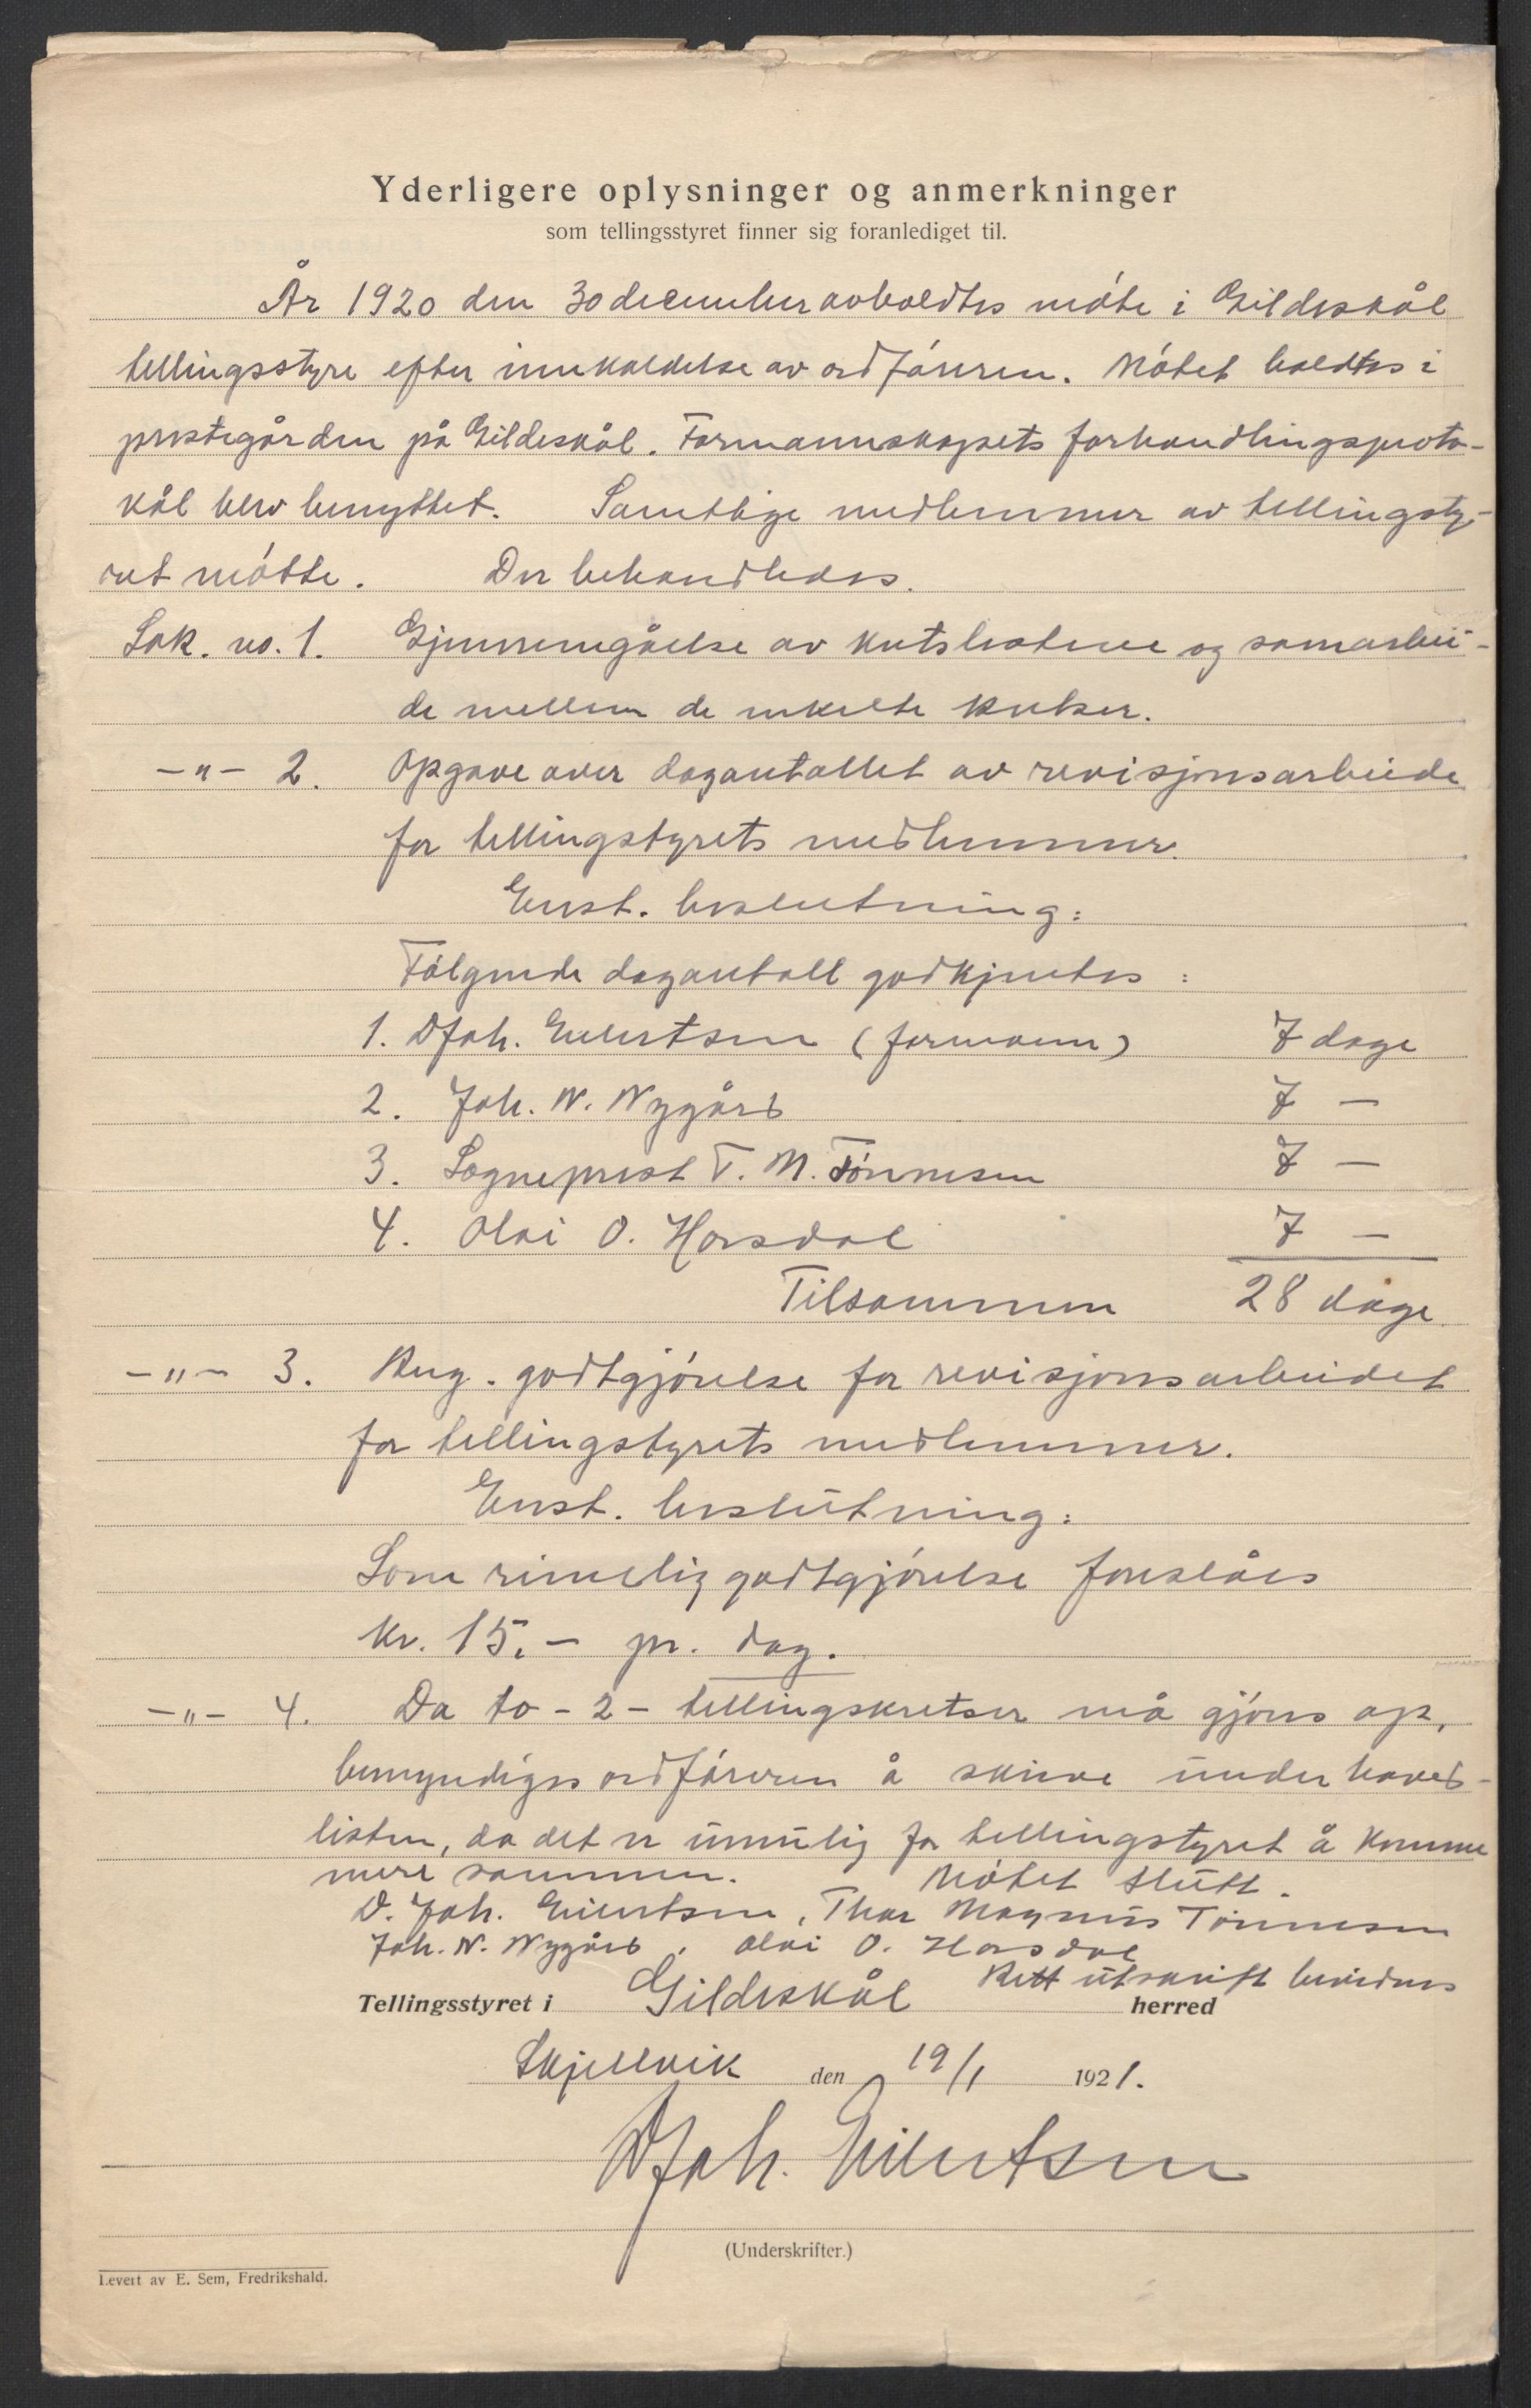 Yderligere oplysninger og anmerkninger
som tellingsstyret finner sig foranlediget til.
År 1920 den 30 december avholdtes møte i Gildeskål
tellingsstyre efter innkaldelse av ordføreren. Møtet holdtes i
prestegården på Gildeskål. Formannskapets forhandlingsproto-
kål blev benyttet. Samtlige medlemmer av tellingsty-
ret møtte. Der behandledes.
Sak. no. 1. Gjennemgåelse av kretslistene og samarbei-
de mellem de enkelte kretser.
-"- 2. Opgave over dagantallet av revisjonsarbeide
for tellingstyrets medlemmer.
Enst. beslutning:
Følgende dagantall godkjentes:
1. D Joh. Eilertsen (formann) 7 dage
2. Joh. N. Nygård 7 -
3. Sogneprest T. M. Tønnesen 7 -
4. Olai O. Horsdal 7 -
Tilsammen 28 dage
-"- 3. Ang. godtgjørelse for revisjonsarbeidet
for tellingstyrets medlemmer.
Enst. beslutning:
Som rimelig godtgjørelse foreslåes
kr. 15.- pr. dag.
-"- 4. Da to - 2 - tellingskretser må gjøres op,
bemyndiges ordføreren å skrive under hoved-
listen, da det er umulig for tellingstyret å komme
mere sammen. Møtet slutt.
D. Joh. Eilertsen, Thor Magnus Tønnesen
Joh. N. Nygård, Olai O. Horsdal
Rett utskrift bevidnes
Tellingsstyret i Gildeskål herred
Skjellvik den 19/1 1921.
D Joh. Eilertsen
(Underskrifter.)
Levert av E. Sem, Fredrikshald.